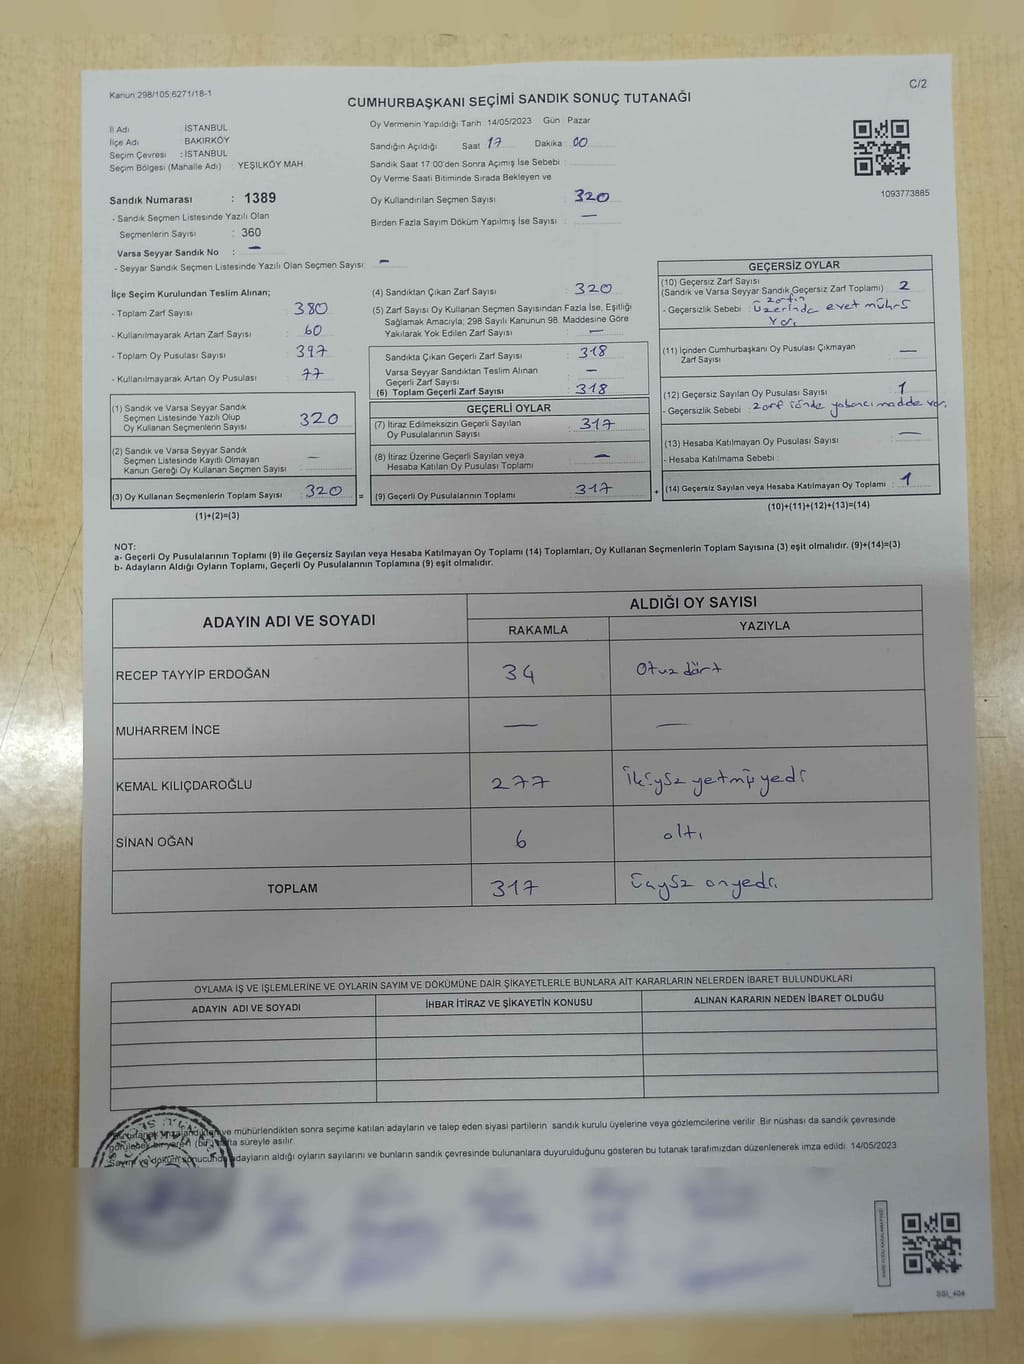 Kanun:298/105;6271/18-1
C/2
CUMHURBAŞKANI SEÇİMİ SANDIK SONUÇ TUTANAĞI
İl Adı İSTANBUL
İlçe Adı BAKIRKÖY
Seçim Çevresi : İSTANBUL
Seçim Bölgesi (Mahalle Adı) : YEŞİLKÖY MAH.
Oy Vermenin Yapıldığı Tarih 14/05/2023 Gün Pazar
Sandığın Açıldığı Saat 17 Dakika 00
Sandık Saat 17:00'den Sonra Açımış İse Sebebi
Oy Verme Saati Bitiminde Sırada Bekleyen ve
Oy Kullandırılan Seçmen Sayısı : 320
Birden Fazla Sayım Döküm Yapılmış İse Sayısı : —
1093773885
Sandık Numarası : 1389
- Sandık Seçmen Listesinde Yazılı Olan
Seçmenlerin Sayısı : 360
Varsa Seyyar Sandık No : —
- Seyyar Sandık Seçmen Listesinde Yazılı Olan Seçmen Sayısı: —
İlçe Seçim Kurulundan Teslim Alınan;
- Toplam Zarf Sayısı : 380
- Kullanılmayarak Artan Zarf Sayısı : 60
- Toplam Oy Pusulası Sayısı : 397
- Kullanılmayarak Artan Oy Pusulası : 77
(1) Sandık ve Varsa Seyyar Sandık
Seçmen Listesinde Yazılı Olup
Oy Kullanan Seçmenlerin Sayısı : 320
(2) Sandık ve Varsa Seyyar Sandık
Seçmen Listesinde Kayıtlı Olmayan
Kanun Gereği Oy Kullanan Seçmen Sayısı : —
(3) Oy Kullanan Seçmenlerin Toplam Sayısı : 320 =
(1)+(2)=(3)
(4) Sandıktan Çıkan Zarf Sayısı : 320
(5) Zarf Sayısı Oy Kullanan Seçmen Sayısından Fazla İse, Eşitliği
Sağlamak Amacıyla; 298 Sayılı Kanunun 98. Maddesine Göre
Yakılarak Yok Edilen Zarf Sayısı : —
Sandıkta Çıkan Geçerli Zarf Sayısı : 318
Varsa Seyyar Sandıktan Teslim Alınan
Geçerli Zarf Sayısı : —
(6) Toplam Geçerli Zarf Sayısı : 318
GEÇERLİ OYLAR
(7) İtiraz Edilmeksizin Geçerli Sayılan
Oy Pusulalarının Sayısı : 317
(8) İtiraz Üzerine Geçerli Sayılan veya
Hesaba Katılan Oy Pusulası Toplamı : —
(9) Geçerli Oy Pusulalarının Toplamı : 317 +
GEÇERSİZ OYLAR
(10) Geçersiz Zarf Sayısı
(Sandık ve Varsa Seyyar Sandık Geçersiz Zarf Toplamı) : 2
zarfın
- Geçersizlik Sebebi : üzerinde evet mührü
var.
(11) İçinden Cumhurbaşkanı Oy Pusulası Çıkmayan
Zarf Sayısı : —
(12) Geçersiz Sayılan Oy Pusulası Sayısı : 1
- Geçersizlik Sebebi : zarf içinde yabancı madde var.
(13) Hesaba Katılmayan Oy Pusulası Sayısı : —
- Hesaba Katılmama Sebebi :
(14) Geçersiz Sayılan veya Hesaba Katılmayan Oy Toplamı : 1
(10)+(11)+(12)+(13)=(14)
NOT:
a- Geçerli Oy Pusulalarının Toplamı (9) ile Geçersiz Sayılan veya Hesaba Katılmayan Oy Toplamı (14) Toplamları, Oy Kullanan Seçmenlerin Toplam Sayısına (3) eşit olmalıdır. (9)+(14)=(3)
b- Adayların Aldığı Oyların Toplamı, Geçerli Oy Pusulalarının Toplamına (9) eşit olmalıdır.
ADAYIN ADI VE SOYADI
ALDIĞI OY SAYISI
RAKAMLA YAZIYLA
RECEP TAYYİP ERDOĞAN 34 Otuz dört
MUHARREM İNCE — —
KEMAL KILIÇDAROĞLU 277 İkiyüz yetmiş yedi
SİNAN OĞAN 6 altı
TOPLAM 317 üçyüz onyedi
OYLAMA İŞ VE İŞLEMLERİNE VE OYLARIN SAYIM VE DÖKÜMÜNE DAİR ŞİKAYETLERLE BUNLARA AİT KARARLARIN NELERDEN İBARET BULUNDUKLARI
ADAYIN ADI VE SOYADI İHBAR İTİRAZ VE ŞİKAYETİN KONUSU ALINAN KARARIN NEDEN İBARET OLDUĞU
ve mühürlendikten sonra seçime katılan adayların ve talep eden siyasi partilerin sandık kurulu üyelerine veya gözlemcilerine verilir. Bir nüshası da sandık çevresinde
süreyle asılır.
adayların aldığı oyların sayılarını ve bunların sandık çevresinde bulunanlara duyurulduğunu gösteren bu tutanak tarafımızdan düzenlenerek imza edildi. 14/05/2023
SSI_404